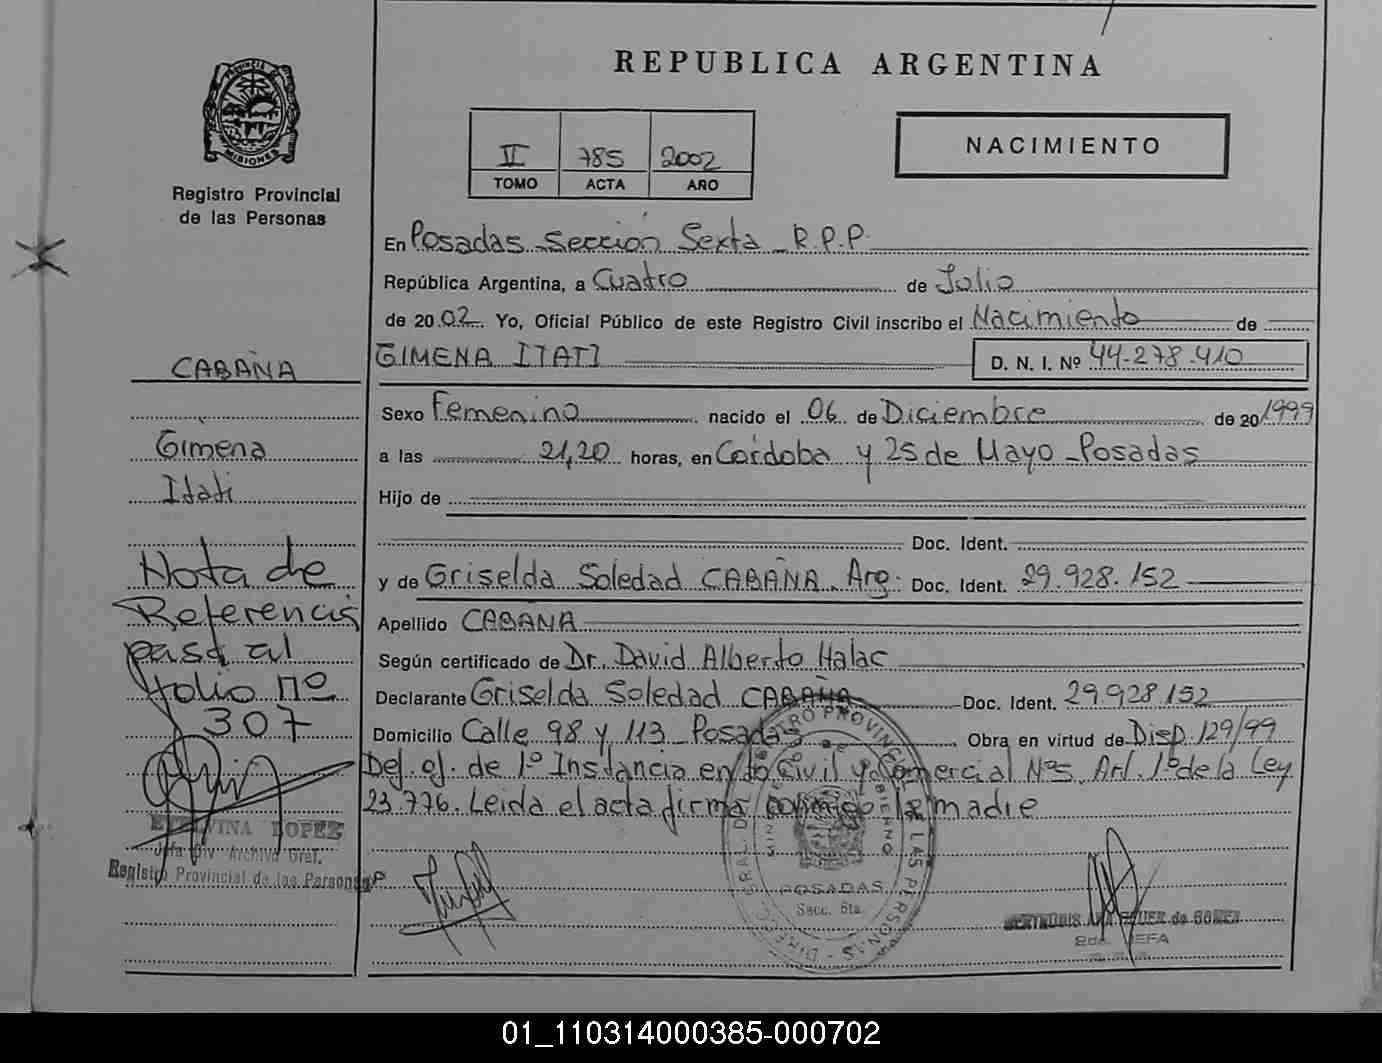 REPUBLICA ARGENTINA
PROVINCIA DE
MISIONES
Registro Provincial
de las Personas
II 785 2002
TOMO ACTA AÑO
NACIMIENTO
En Posadas Sección Sexta R.P.P.
República Argentina, a Cuatro de Julio
de 2002 Yo, Oficial Público de este Registro Civil inscribo el Nacimiento de
GIMENA ITATI D. N. I. Nº 44.278.410
Sexo Femenino nacido el 06 de Diciembre de 20/1999
a las 21,20 horas, en Córdoba y 25 de Mayo - Posadas
Hijo de
Doc. Ident.
y de Griselda Soledad CABAÑA. Arg. Doc. Ident. 29.928.152
Apellido CABAÑA
Según certificado de Dr. David Alberto Halac
Declarante Griselda Soledad CABAÑA Doc. Ident. 29.928.152
Domicilio Calle 98 y 113 Posadas Obra en virtud de Disp. 129/99
Def. of. de 1º Instancia en lo Civil y Comercial Nº5. Art. 1º de la Ley
23.776. Leida el acta firma conmigo la madre
CABAÑA
Gimena
Itati
Nota de
Referencia
pasa al
folio nº
307
LOPEZ
Jefa Div. Archivo Gral.
Registro Provincial de las Personas
POSADAS
Secc. 6ta.
GERTRUDIS ANA de GOMEZ
2da. JEFA
01_110314000385-000702